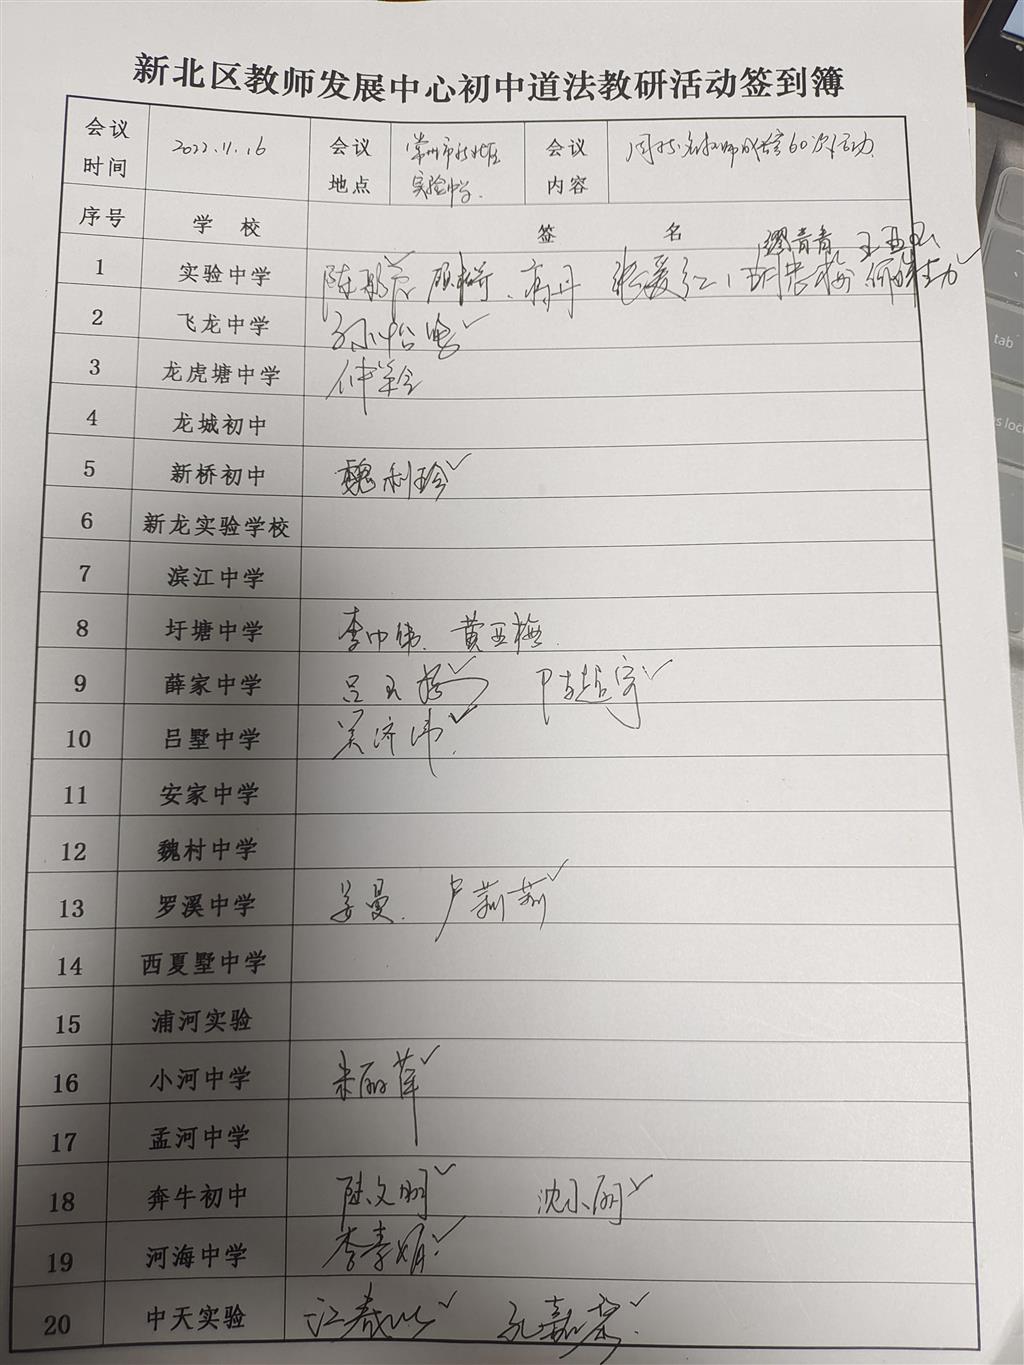 新北区教师发展中心初中道法教研活动签到簿
会议时间 2022.11.16 会议地点 常州市新北区实验中学. 会议内容 名教师成长60次活动
序号 学校 签名
缪青青 王亚
1 实验中学 陈 高丹 张爱红
2 飞龙中学 孙怡
3 龙虎塘中学 仲
4 龙城初中
5 新桥初中 魏利玲
6 新龙实验学校
7 滨江中学
8 圩塘中学 李中伟. 黄亚梅.
9 薛家中学 吕玉梅 陆超宇
10 吕墅中学 吴济伟.
11 安家中学
12 魏村中学
13 罗溪中学 姜曼. 卢莉莉
14 西夏墅中学
15 浦河实验
16 小河中学 朱丽萍
17 孟河中学
18 奔牛初中 陆文明 沈小丽
19 河海中学 李素娟.
20 中天实验 江 孔嘉
tab
s lock